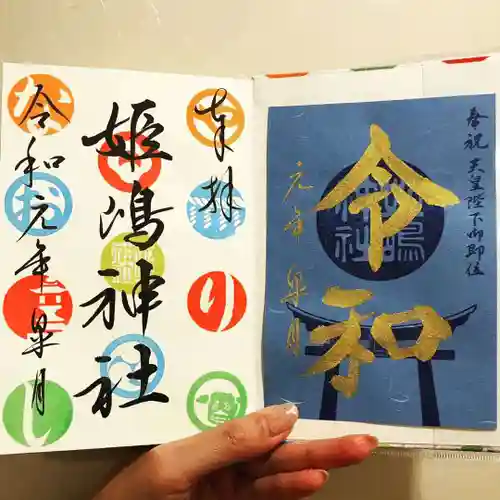 奉拝
姫嶋神社
令和元年皐月
奉祝 天皇陛下御即位
令和
元年 皐月